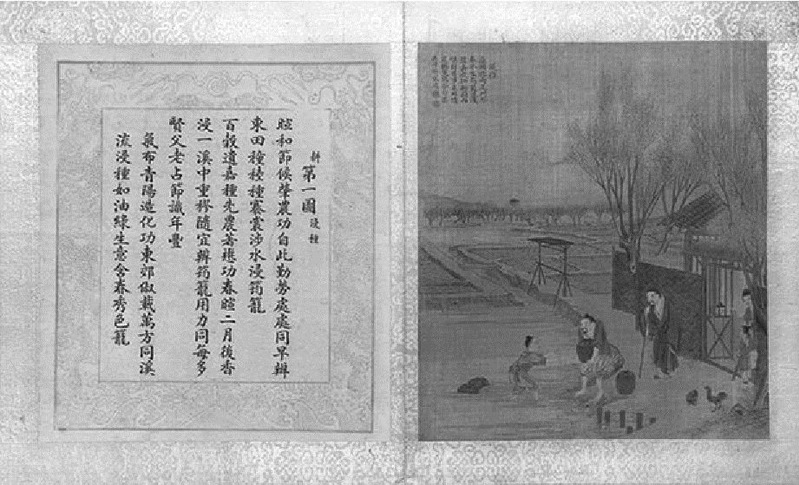 耕 第一圖 浸種
暄和節候肇農功自此勤勞處處同早辦
東田穜稑種褰裳涉水浸筠籠
百穀遺嘉種先農著懋功春暄二月後香
浸一溪中重穋隨宜辦筠籠用力同每多
賢父老占節識年豐
氣布青陽造化功東郊俶載萬方同溪
流浸種如油綠生意含春秀色籠